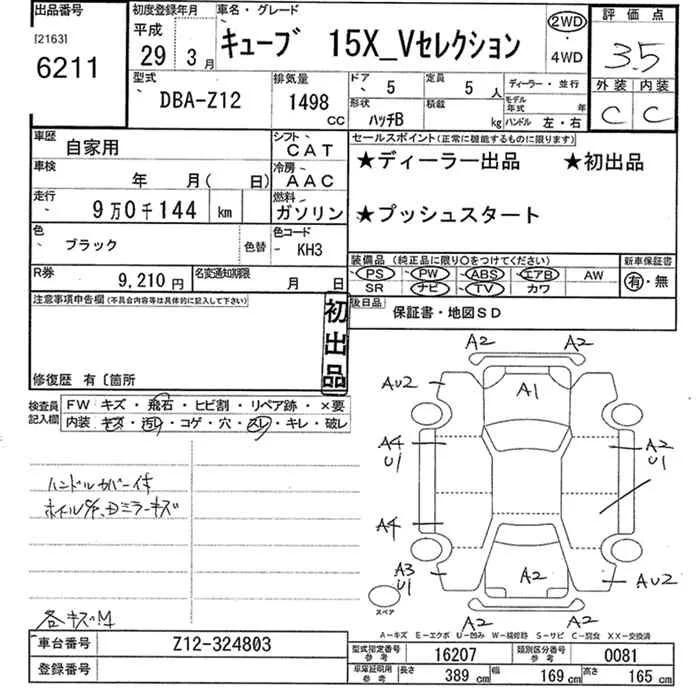 出品番号 初度登録年月 車名・グレード 評価点
[2163] 平成 キューブ 15X_Vセレクション 2WD 3.5
6211 29年 3月 ・ 4WD
外装 内装
型式 排気量 ドア 定員 ディーラー・並行
DBA-Z12 1498 CC 5 5人 モデル年式 年
C C
形状 積載
ハッチB kg ハンドル 左・右
車歴 自家用 シフト CAT セールスポイント(正常に機能するものに限ります)
車検 年 月( 日) 冷房 AAC ★ディーラー出品 ★初出品
走行 9万0千144 km 燃料 ガソリン ★プッシュスタート
色 ブラック 色替 色コード KH3
装備品 (純正品に限り○をつけてください) 新車保証書
PS PW ABS エアB AW 有・無
SR ナビ TV カワ
R券 9,210円 名変通知期限 月 日
後日品 保証書・地図SD
注意事項申告欄(不具合内容等は具体的に記入して下さい)
初出品
修復歴 有〔箇所
検査員記入欄
FW キズ・飛石・ヒビ割・リペア跡・×要
内装 キズ・汚レ・コゲ・穴・スレ・キレ・破レ
A2 A2
AU2 A1
A4 U1 A2 U1
ハンドルカバー付
ミラーキズ
A4
A3 U1 A2 AU2
スペア
A2 A2
各キズ・M
A-キズ E-エクボ U-凹み W-補修跡 S-サビ C-腐食 XX-交換済
車台番号 Z12-324803
登録番号
型式指定番号 参考 16207 類別区分番号 参考 0081
車庫証明用 参考 長さ 389cm 幅 169cm 高さ 165cm